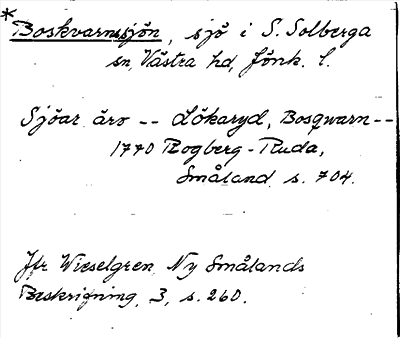 *
Boskvarnssjön, sjö i S. Solberga
sn, Västra hd, Jönk. l.
Sjöar äro -- Lökaryd, Bosqwarn --
1770 Rogberg - Ruda,
Småland s. 704.
Jfr Wieselgren, Ny Smålands
Beskrifning, 3, s. 260.